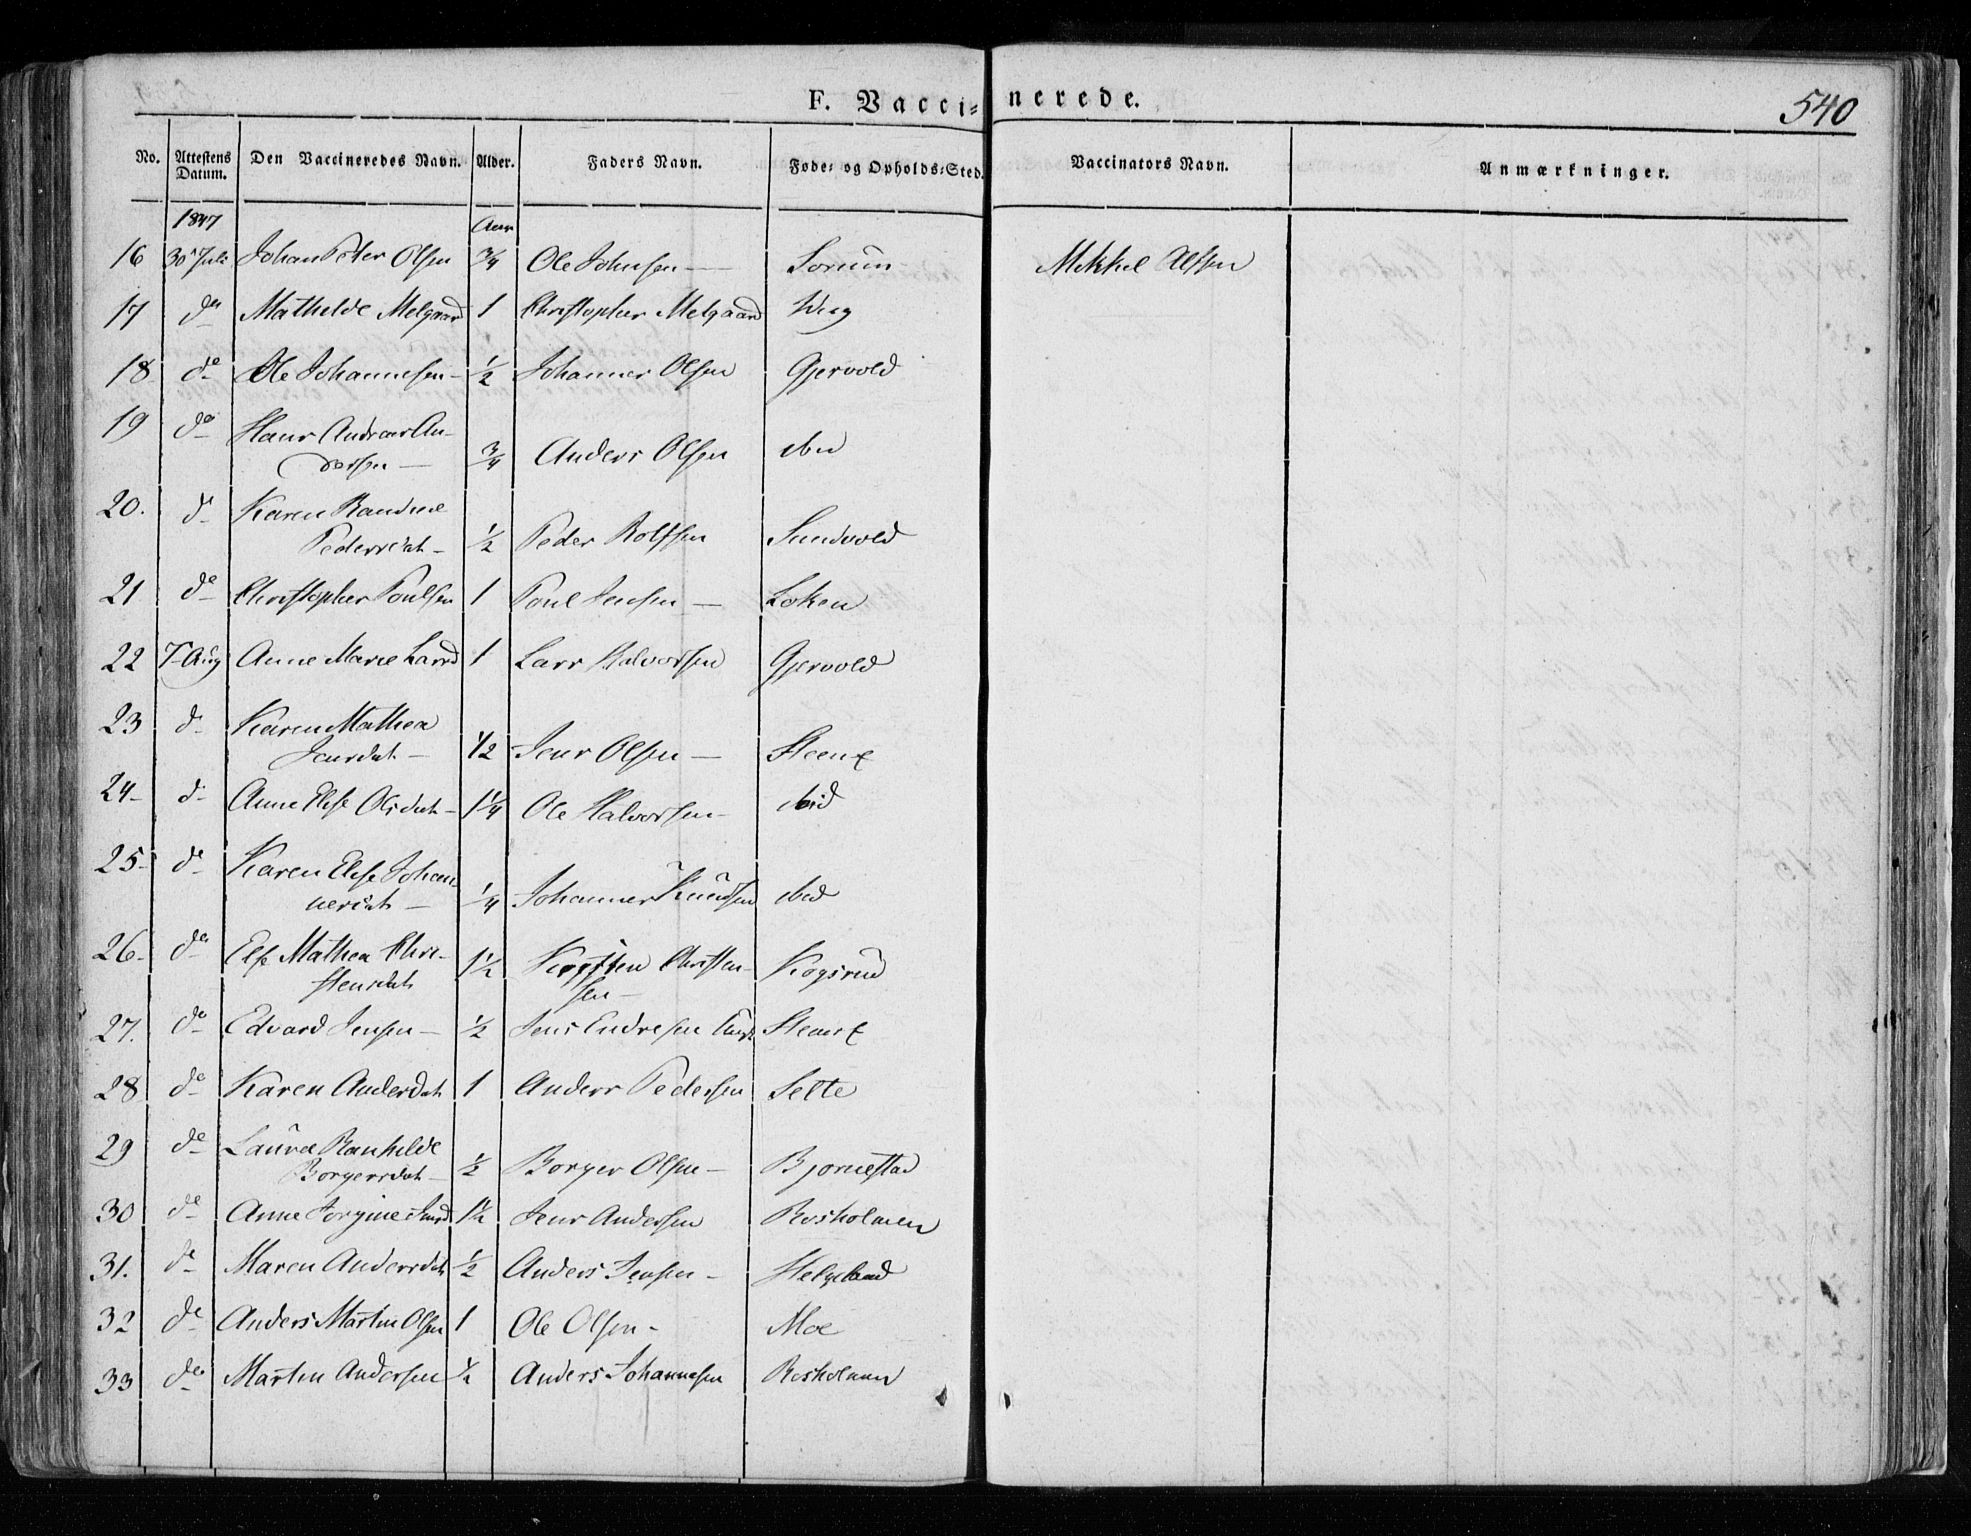 F. Vaccinerede.
540
No. Attestens Datum. Den Vaccineredes Navn. Alder. Faders Navn. Føde- og Opholds-Sted. Vaccinators Navn. Anmærkninger.
1847 Aar
16 30 Juli Johan Peter Olsen 3/4 Ole Johnsen — Sorum Mikkel Olssen
17 do Mathilde Melgaard 1 Christopher Melgaard Wiig
18 do Ole Johannesen — 1/2 Johannes Olsen Gjervold
19 do Hans Andreas An-
dersen — 3/4 Anders Olsen
20. do Karen Randine
Pedersdat — 1/2 Peder Rolfsen Sundvold
21 do Christopher Poulsen 1 Poul Jensen — Loken
22 7 Aug Anne Marie Larsd 1 Lars Halvorsen Gjervold
23 do Karen Mathea
Jensdat — 1/2 Jens Olsen —
24 — do Anne Else Olsdat — 1 1/4 Ole Halvorsen — ibid
25 — do Karen Else Johan-
nesdat — 1/4 Johannes Knudsen ibid
26 — do Else Mathea Chri-
stensdat 1 1/2 Christen-
sen — Kogsrud
27. do Edvard Jensen — 1/2 Jens Endresen
28 do Karen Andersdat 1 Anders Pedersen Sette
29 do Laura Ranhilde
Borgersdat — 1/2 Borger Olsen — Bjornestad
30 do Anne Jorgine Jensd 1 1/2 Jens Andersen Rosholmen
31. do Maren Andersdat 1/2 Anders Jensen — Helgeland
32 do Anders Martin Olsen 1 Ole Olsen — Moe
33 do Martin Andersen 1/2 Anders Johannesen Rosholmen